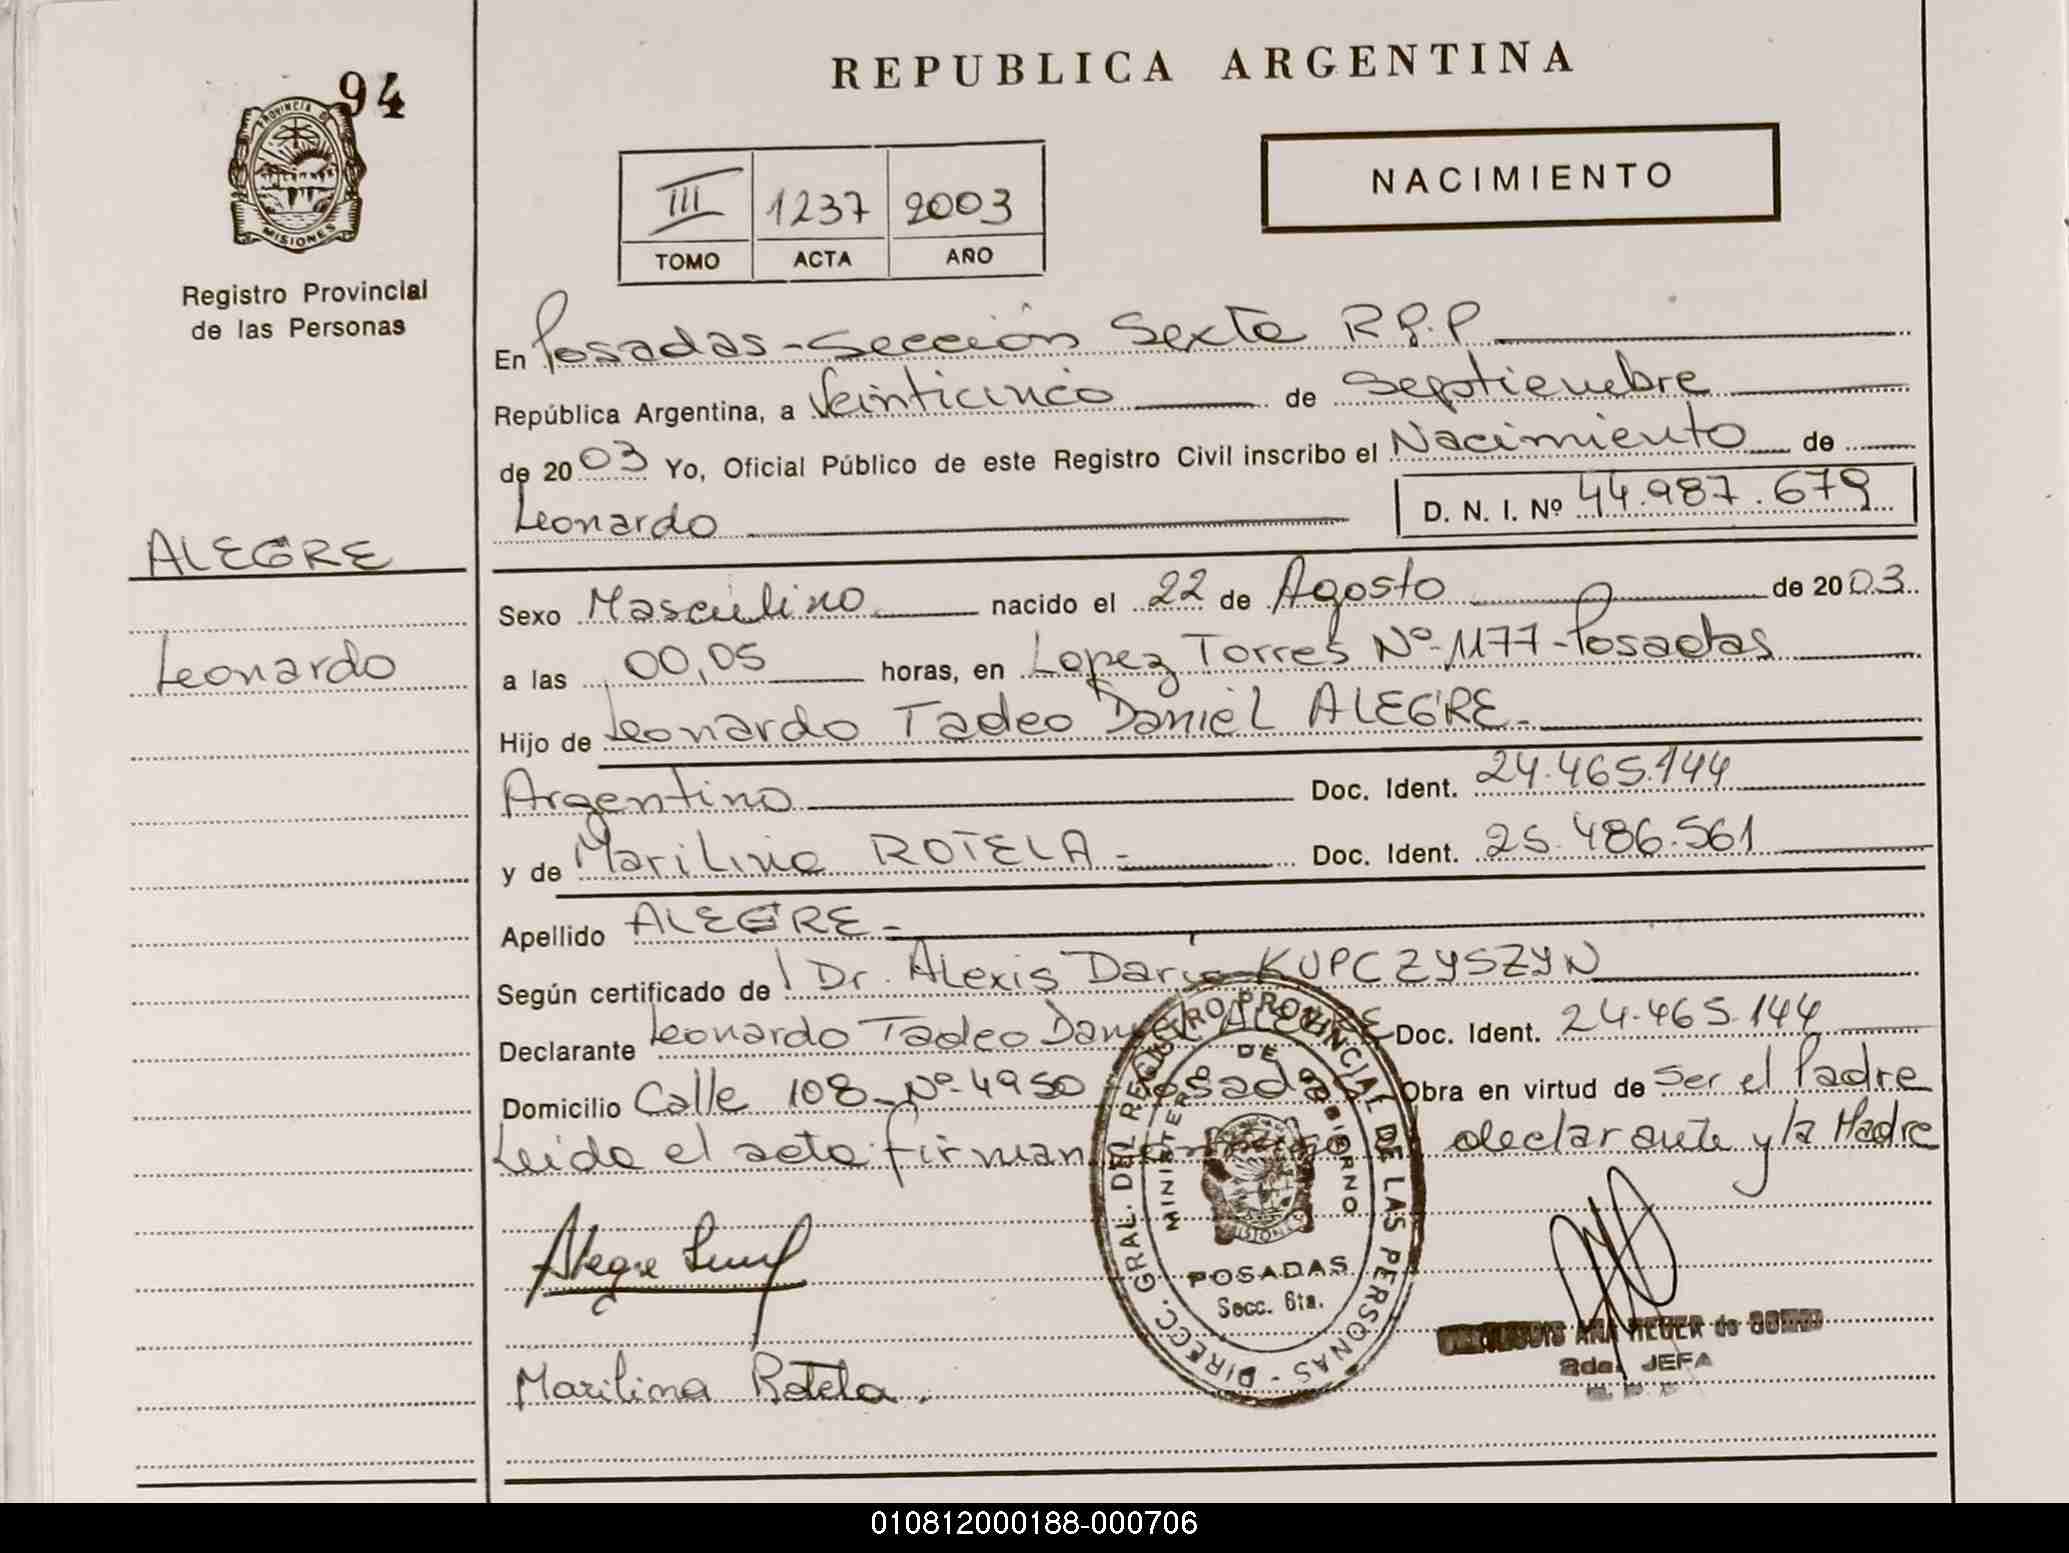 94
PROVINCIA DE
MISIONES
Registro Provincial
de las Personas
REPUBLICA ARGENTINA
NACIMIENTO
III 1237 2003
TOMO ACTA AÑO
En Posadas - Sección Sexta R.P.P
República Argentina, a Veinticinco de Septiembre
de 2003 Yo, Oficial Público de este Registro Civil inscribo el Nacimiento de
Leonardo D. N. I. Nº 44.987.679
ALEGRE
Leonardo
Sexo Masculino nacido el 22 de Agosto de 2003
a las 00,05 horas, en Lopez Torres Nº 1177 - Posadas
Hijo de Leonardo Tadeo Daniel ALEGRE.
Argentino Doc. Ident. 24.465.144
y de Marilina ROTELA - Doc. Ident. 25.486.561
Apellido ALEGRE -
Según certificado de Dr. Alexis Dario KUPCZYSZYN
Declarante Leonardo Tadeo Daniel ALEGRE Doc. Ident. 24.465.144
Domicilio Calle 108 - Nº 4950 Posadas Obra en virtud de Ser el Padre
Leida el acta firman declarante y la Madre
DIRECC. GRAL. DEL REGISTRO PROVINCIAL DE LAS PERSONAS -
MINISTERIO DE GOBIERNO
MISIONES
POSADAS
Secc. 6ta.
Alegre
Marilina Rotela.
ANA de
2da. JEFA
010812000188-000706